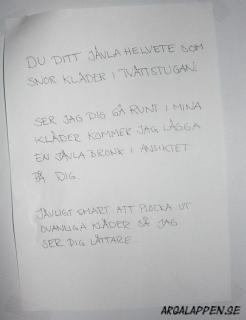 DU DITT JÄVLA HELVETE SOM
SNOR KLÄDER I TVÄTTSTUGAN!
SER JAG DIG GÅ RUNT I MINA
KLÄDER KOMMER JAG LÄGGA
EN JÄVLA BRONK I ANSIKTET
PÅ DIG.
JÄVLIGT SMART ATT PLOCKA UT
OVANLIGA KLÄDER SÅ JAG
SER DIG LÄTTARE.
ARGALAPPEN.SE